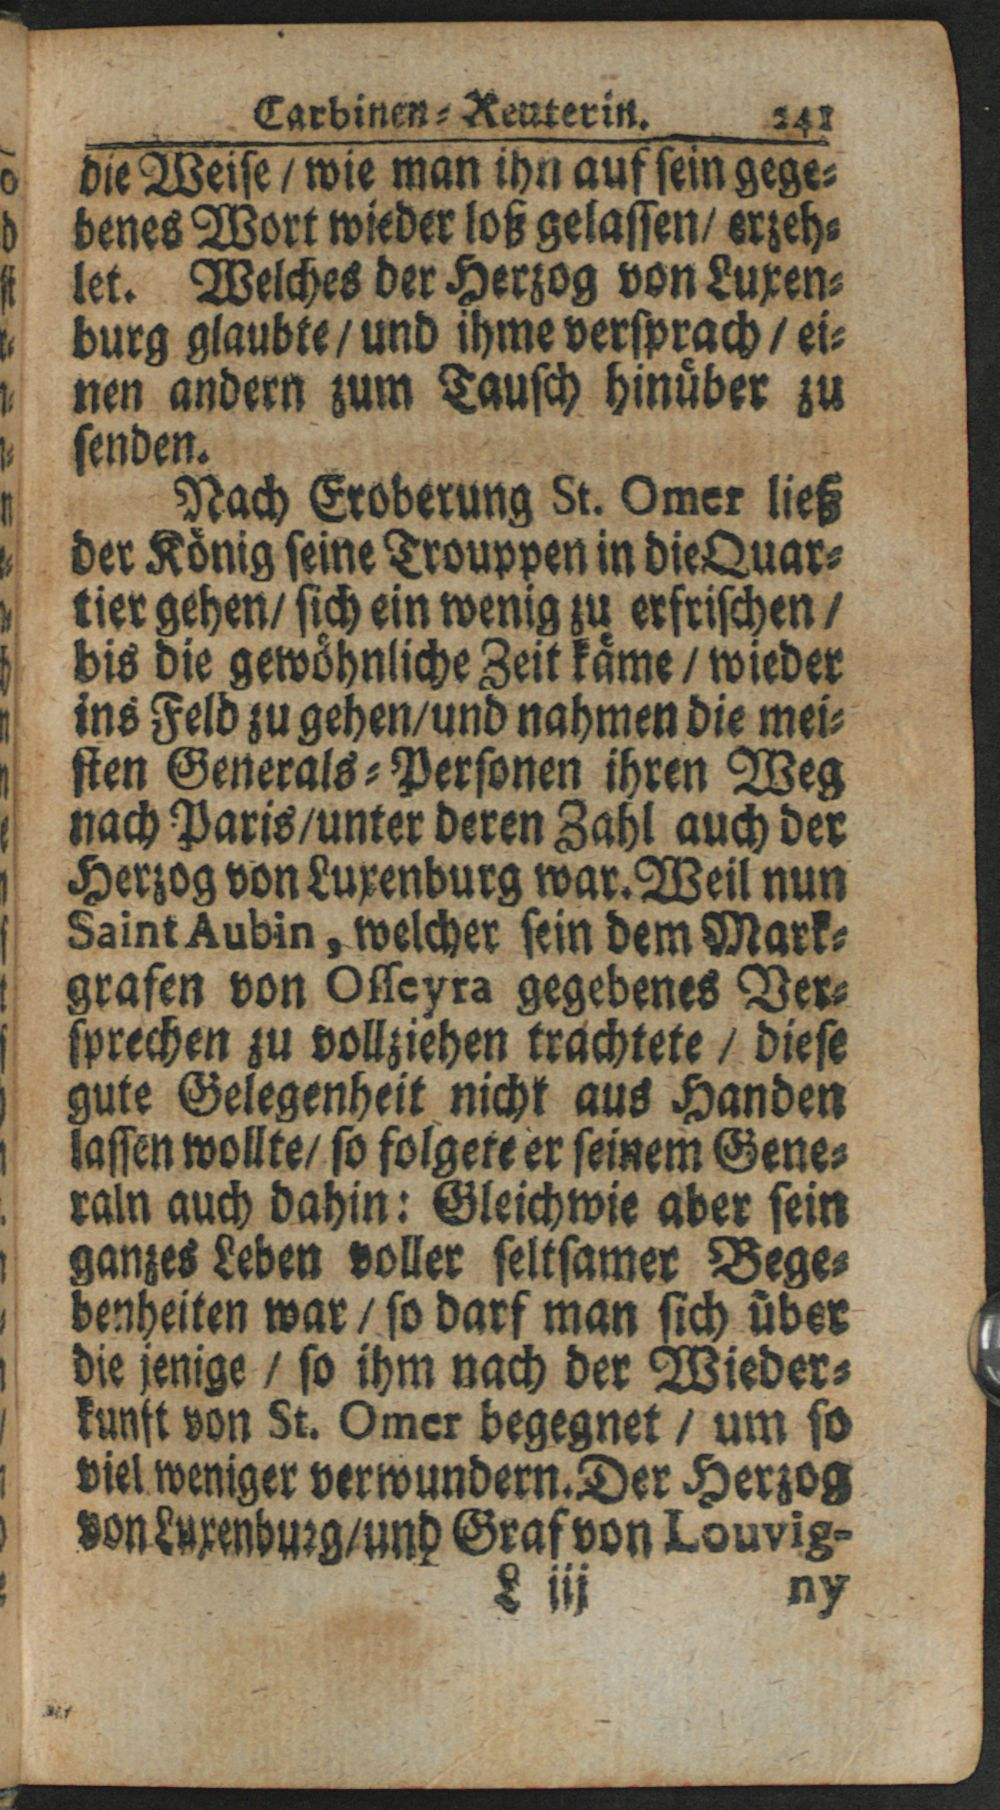 Carbinen-Reuterin. 241
die Weiſe / wie man ihn auf ſein gege-
benes Wort wieder loß gelaſſen / erzeh-
let. Welches der Herzog von Luxen-
burg glaubte / und ihme verſprach / ei-
nen andern zum Tauſch hinuͤber zu
ſenden.
Nach Eroberung St. Omer ließ
der Koͤnig ſeine Trouppen in die Quar-
tier gehen / ſich ein wenig zu erfriſchen /
bis die gewoͤhnliche Zeit kaͤme / wieder
ins Feld zu gehen / und nahmen die mei-
ſten Generals-Perſonen ihren Weg
nach Paris / unter deren Zahl auch der
Herzog von Luxenburg war. Weil nun
Saint Aubin, welcher ſein dem Mark-
grafen von Oſſeyra gegebenes Ver-
ſprechen zu vollziehen trachtete / dieſe
gute Gelegenheit nicht aus Handen
laſſen wollte / ſo folgete er ſeinem Gene-
raln auch dahin: Gleichwie aber ſein
ganzes Leben voller ſeltſamer Bege-
benheiten war / ſo darf man ſich uͤber
die jenige / ſo ihm nach der Wieder-
kunft von St. Omer begegnet / um ſo
viel weniger verwundern. Der Herzog
von Luxenburg / und Graf von Louvig-
L iij ny